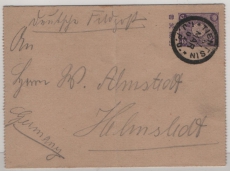 Deutsche Feldpost
An
Herrn W. Almstedt
Helmstedt
Germany